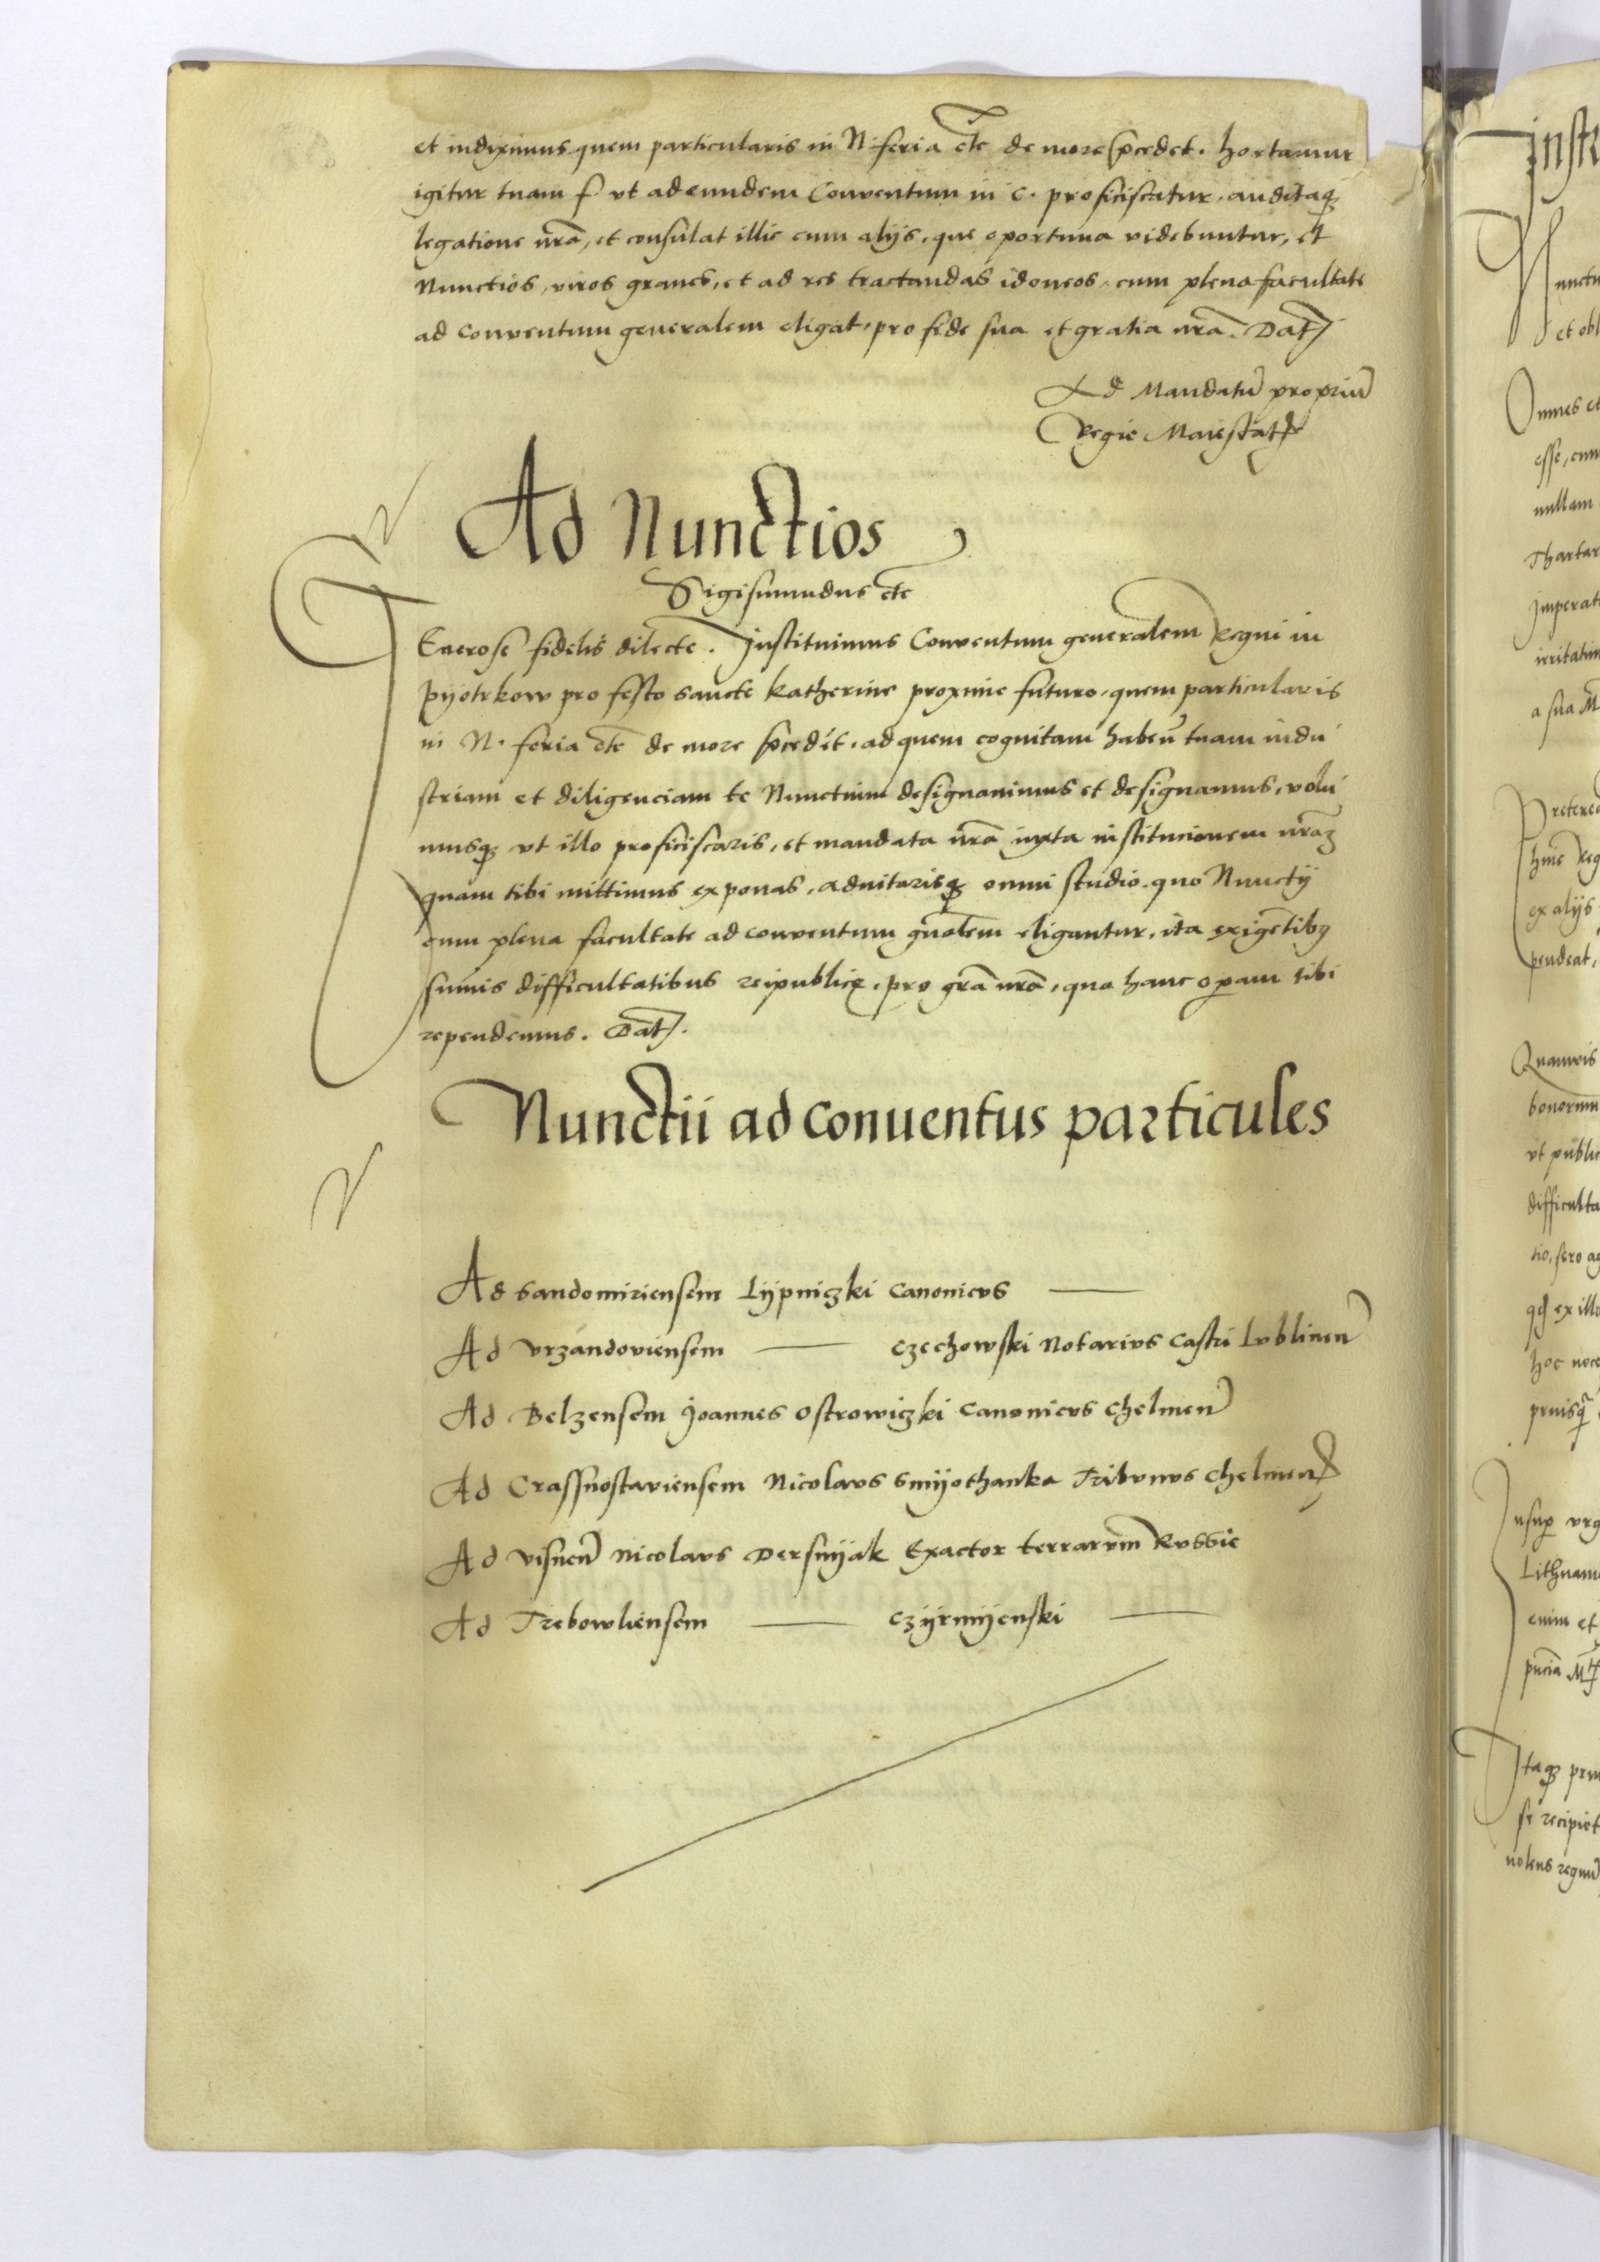 et indiximus quem particularis in N feria etc̄ de more p̄cedet. hortamur
igitur tuam f vt ad eundem Conventum in C. proficiscatur, auditaq₃
legatione nr̄a, et consulat illic cum alijs, que oportuna videbuntur, et
Nunctios, viros graves, et ad res tractandas idoneos, cum plena facultate
ad conventum generalem eligat, pro fide sua et gratia nr̄a. Dat̄
Ad Mandatū propriū
Regie Maiestatꝭ
Ad Nunctios
Sigismundus etc̄
GEnerose fidelis dilecte. Instituimus Conventum generalem Regni in
Pijotrkow pro festo sancte Katherine proxime futuro, quem particularis
in N. feria etc̄ de more p̄cedit, ad quem cognitam habeñ tuam indu
striam et diligenciam te Nunctium designavimus et designamus, volu
musq₃ vt illo proficiscaris, et mandata nr̄a iuxta institucionem nr̄aʒ
quam tibi mittimus exponas, adnitarisq₃ omni studio, quo Nunctij
cum plena facultate ad conventum gn̄alem eligantur, ita exigētibꝰ
sum̄is difficultatibus reipublicę, pro gr̄a nr̄a, qua hanc op̄am tibi
rependemus. Dat̄.
Nunctii ad conuentus particules
Ad Sandomiriensem Lijpniczki Canonicus —
Ad Vrzandoviensem — Czechowski Notarius Castri Lublineñ
Ad Belzensem Joannes Ostrowiczki Canonicus Chelmeñ
Ad Crassnostaviensem Nicolaus Smijothanka Tribunus Chelmenꝭ
Ad Visneñ Nicolaus Dersnijak Exactor terrarum Russie
Ad Trebowliensem — Czijrmijenski —
Omnes et
et obl
esse, cum
nullam
Thartar
Imperat
irritatim
a sua M
ex alijs
pendeat,
Quamvis
bonorum
vt public
difficulta
ex illo
hoc noce
Lithuani
enim et
Itaq₃
se recipiet
nolens regnū